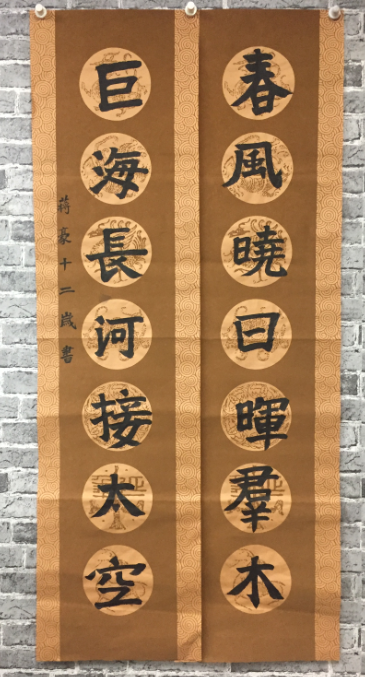 春風曉日暉羣木
巨海長河接太空
蔣豪十二歲書